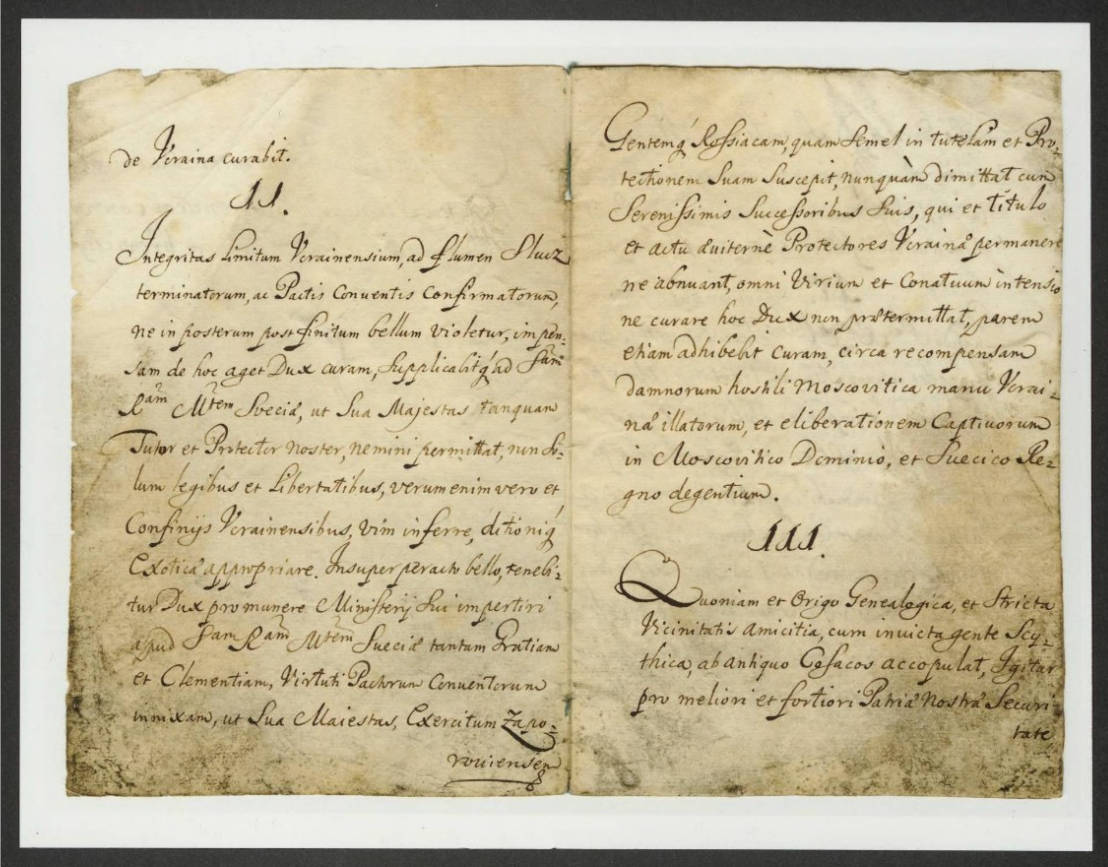 de Ucraina curabit.
II.
Integritas limitum Ucrainensium, ad flumen Slucz
terminatorum, ac Pactis Conventis confirmatorum,
ne in posterum post finitum bellum violetur, impen-
sam de hoc aget Dux curam, supplicabitq́ ad Sam̃
Ram̃ Mtem̃ Sveciæ, ut Sua Majestas tanquam
Tutor et Protector noster, nemini permittat, non so-
lum legibus et Libertatibus, verum enim vero et
Confinijs Ucrainensibus, vim inferre, ditioniq́
Exoticæ appropriare. Insuper peracto bello, tenebi-
tur Dux pro munere Ministerij sui impertiri
apud Sam Ram̃ Mtem̃ Sueciæ tantam Gratiam
et Clementiam, Virtuti Pactorum Conventorum
innixam, ut Sua Maiestas, Exercitum Zapo-
roviensem
Gentemq́ Rossiacam, quam semel in tutelam et Pro-
tectionem Suam Suscepit, nunquàm dimittat cum
Serenissimis Successoribus suis, qui et titulo
et actu æviternè Protectores Ucrainæ permanere
ne abnuant, omni Virium et Conatuum intensio
ne curare hoc Dux non prætermittat, parem
etiam adhibebit curam, circa recompensam
damnorum hostili Moscovitica manu Ucrai-
næ illatorum, et eliberationem Captivorum
in Moscovitico Dominio, et Suecico Re-
gno degentium.
III.
Quoniam et Origo Genealogica, et Stricta
Vicinitatis amicitia, cum invicta gente Scy-
thica, ab antiquo Cosacos accopulat, Igitur
pro meliori et fortiori Patriæ Nostræ Securi
tate